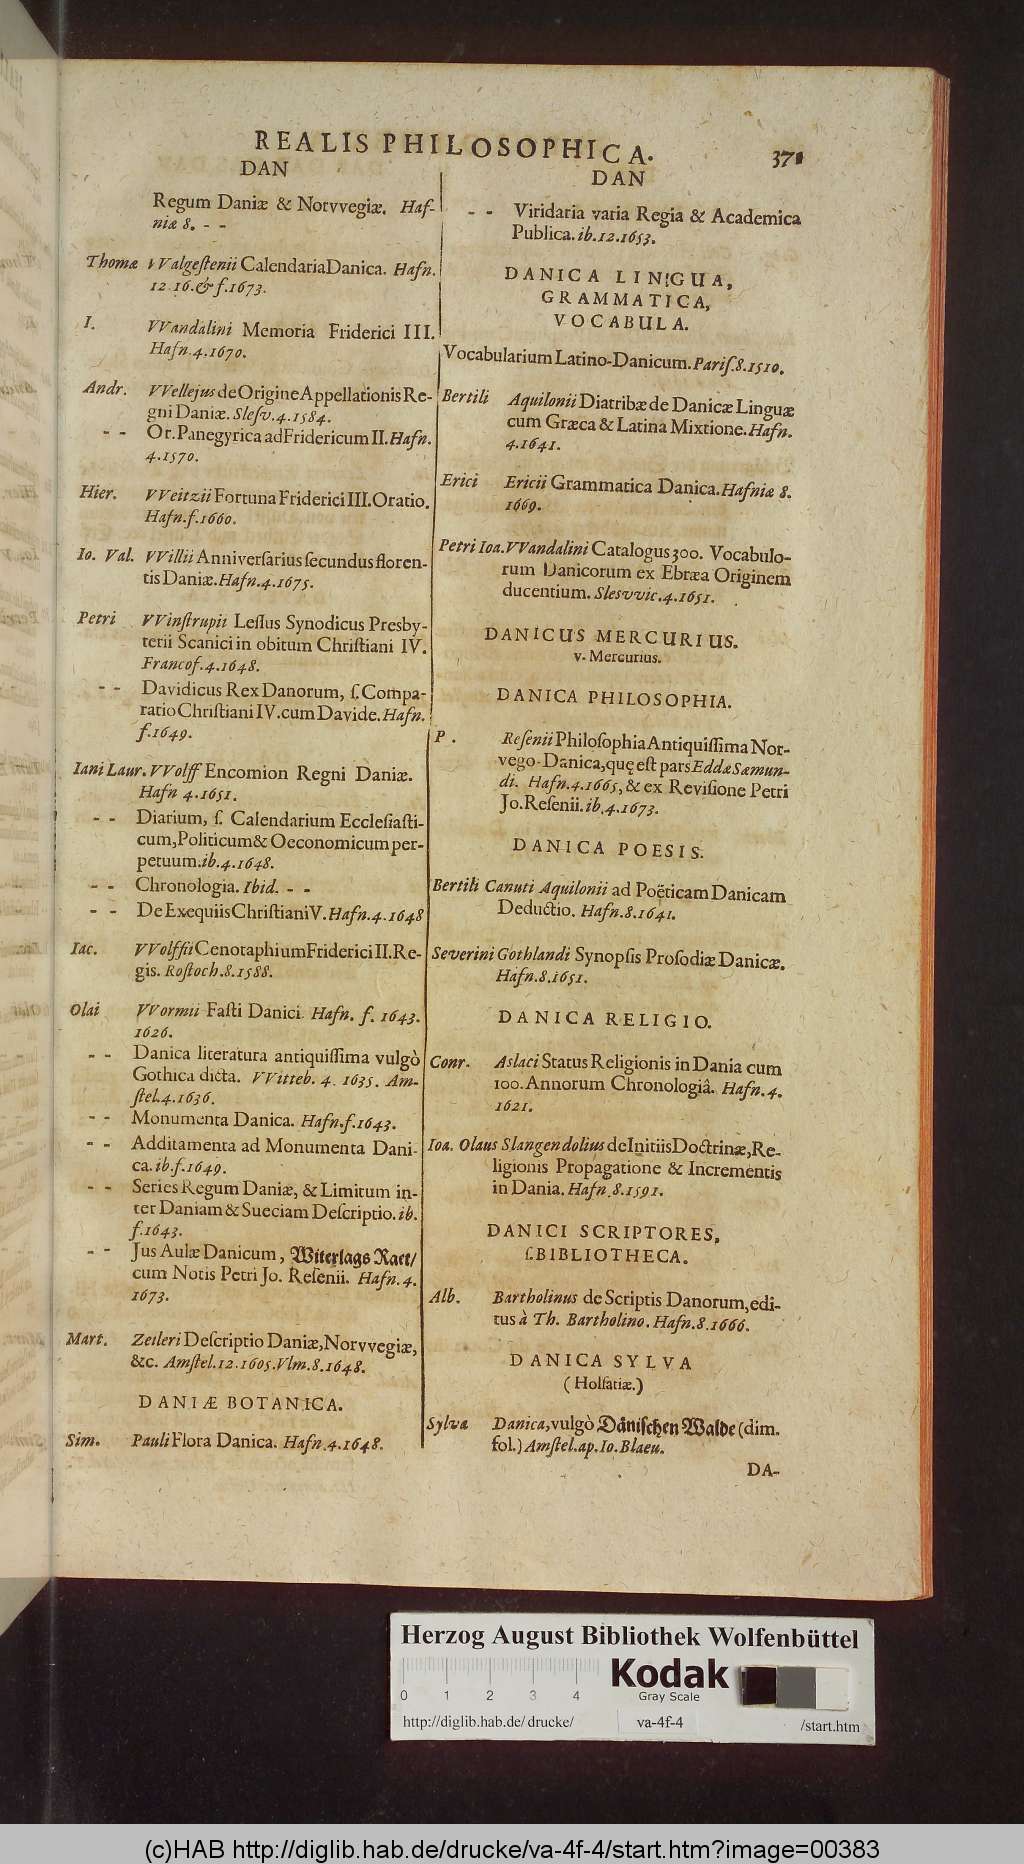 REALIS PHILOSOPHICA. 371
DAN
Regum Daniæ & Norvvegiæ. Haf-
niæ 8. - -
Thomæ VValgeſtenii Calendaria Danica. Hafn.
12. 16. & f. 1673.
I. VVandalini Memoria Friderici III.
Hafn. 4. 1670.
Andr. VVellejus de Origine Appellationis Re-
gni Daniæ. Sleſv. 4. 1584.
- - Or. Panegyrica ad Fridericum II. Hafn.
4. 1570.
Hier. VVeitzii Fortuna Friderici III. Oratio.
Hafn. f. 1660.
Io. Val. VVillii Anniverſarius ſecundus floren-
tis Daniæ. Hafn. 4. 1675.
Petri VVinſtrupii Leſſus Synodicus Presby-
terii Scanici in obitum Chriſtiani IV.
Francof. 4. 1648.
- - Davidicus Rex Danorum, ſ. Compa-
ratio Chriſtiani IV. cum Davide. Hafn.
f. 1649.
Iani Laur. VVolff Encomion Regni Daniæ.
Hafn 4. 1651.
- - Diarium, ſ. Calendarium Eccleſiaſti-
cum, Politicum & Oeconomicum per-
petuum. ib. 4. 1648.
- - Chronologia. Ibid. - -
- - De Exequiis Chriſtiani V. Hafn. 4. 1648
Iac. VVolffii Cenotaphium Friderici II. Re-
gis. Roſtoch. 8. 1588.
Olai VVormii Faſti Danici. Hafn. f. 1643.
1626.
- - Danica literatura antiquiſſima vulgò
Gothica dicta. VVitteb. 4. 1635. Am-
ſtel. 4. 1636.
- - Monumenta Danica. Hafn. f. 1643.
- - Additamenta ad Monumenta Dani-
ca. ib. f. 1649.
- - Series Regum Daniæ, & Limitum in-
ter Daniam & Sueciam Deſcriptio. ib.
f. 1643.
- - Jus Aulæ Danicum, Witerlags Raet/
cum Notis Petri Jo. Reſenii. Hafn. 4.
1673.
Mart. Zeileri Deſcriptio Daniæ, Norvvegiæ,
&c. Amſtel. 12. 1605. Vlm. 8. 1648.
DANIÆ BOTANICA.
Sim. Pauli Flora Danica. Hafn. 4. 1648.
DAN
- - Viridaria varia Regia & Academica
Publica. ib. 12. 1653.
DANICA LINGUA,
GRAMMATICA,
VOCABULA.
Vocabularium Latino-Danicum. Pariſ. 8. 1510.
Bertili Aquilonii Diatribæ de Danicæ Linguæ
cum Græca & Latina Mixtione. Hafn.
4. 1641.
Erici Ericii Grammatica Danica. Hafniæ 8.
1669.
Petri Ioa. VVandalini Catalogus 300. Vocabulo-
rum Danicorum ex Ebræa Originem
ducentium. Slesvvic. 4. 1651.
DANICUS MERCURIUS.
v. Mercurius.
DANICA PHILOSOPHIA.
P. Reſenii Philoſophia Antiquiſſima Nor-
vego-Danica, quę eſt pars Eddæ Sæmun-
di. Hafn. 4. 1665, & ex Reviſione Petri
Jo. Reſenii. ib. 4. 1673.
DANICA POESIS.
Bertili Canuti Aquilonii ad Poëticam Danicam
Deductio. Hafn. 8. 1641.
Severini Gothlandi Synopſis Proſodiæ Danicæ.
Hafn. 8. 1651.
DANICA RELIGIO.
Conr. Aslaci Status Religionis in Dania cum
100. Annorum Chronologiâ. Hafn. 4.
1621.
Ioa. Olaus Slangendolius de Initiis Doctrinæ, Re-
ligionis Propagatione & Incrementis
in Dania. Hafn. 8. 1591.
DANICI SCRIPTORES,
ſ. BIBLIOTHECA.
Alb. Bartholinus de Scriptis Danorum, edi-
tus à Th. Bartholino. Hafn. 8. 1666.
DANICA SYLVA
(Holſatiæ.)
Sylva Danica, vulgò Däniſchen Walde (dim.
fol.) Amſtel. ap. Io. Blaeu.
DA-
Herzog August Bibliothek Wolfenbüttel
0 1 2 3 4
Kodak
Gray Scale
http://diglib.hab.de/drucke/ va-4f-4 /start.htm
(c)HAB http://diglib.hab.de/drucke/va-4f-4/start.htm?image=00383